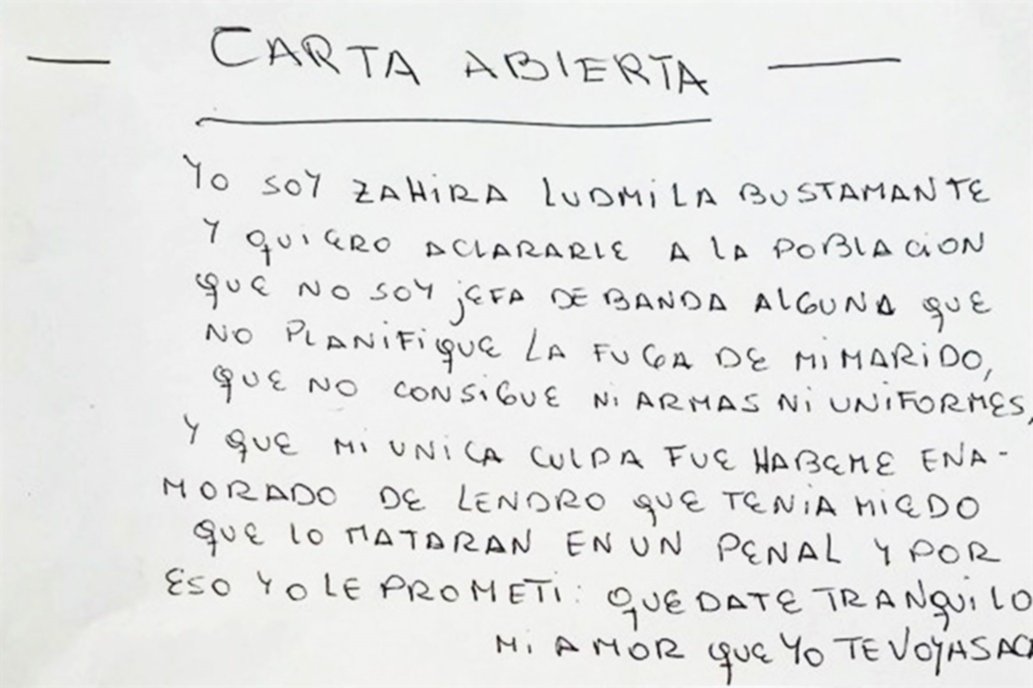 CARTA ABIERTA
YO SOY ZAHIRA LUDMILA BUSTAMANTE
Y QUIERO ACLARARLE A LA POBLACION
QUE NO SOY JEFA DE BANDA ALGUNA QUE
NO PLANIFIQUE LA FUGA DE MI MARIDO,
QUE NO CONSIGUE NI ARMAS NI UNIFORMES,
Y QUE MI UNICA CULPA FUE HABEME ENA-
MORADO DE LENDRO QUE TENIA MIEDO
QUE LO MATARAN EN UN PENAL Y POR
ESO YO LE PROMETI: QUEDATE TRANQUILO
MI AMOR QUE YO TE VOY A SAC